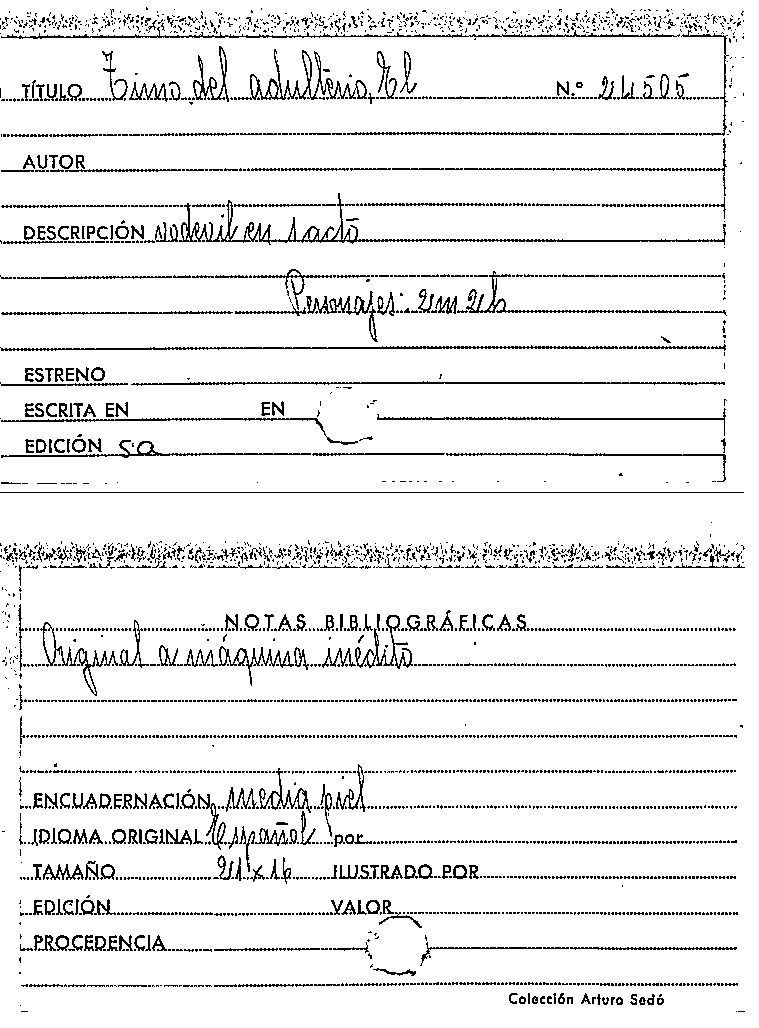 TÍTULO Timo del adulterio, El N.° 24505
AUTOR
DESCRIPCIÓN vodevil en 1 acto
Personajes: 2m 2h
ESTRENO
ESCRITA EN EN
EDICIÓN s.a
NOTAS BIBLIOGRÁFICAS
Original a máquina inédito
ENCUADERNACIÓN media piel
IDIOMA ORIGINAL Español por
TAMAÑO 21x16 ILUSTRADO POR
EDICIÓN VALOR
PROCEDENCIA
Colección Arturo Sedó